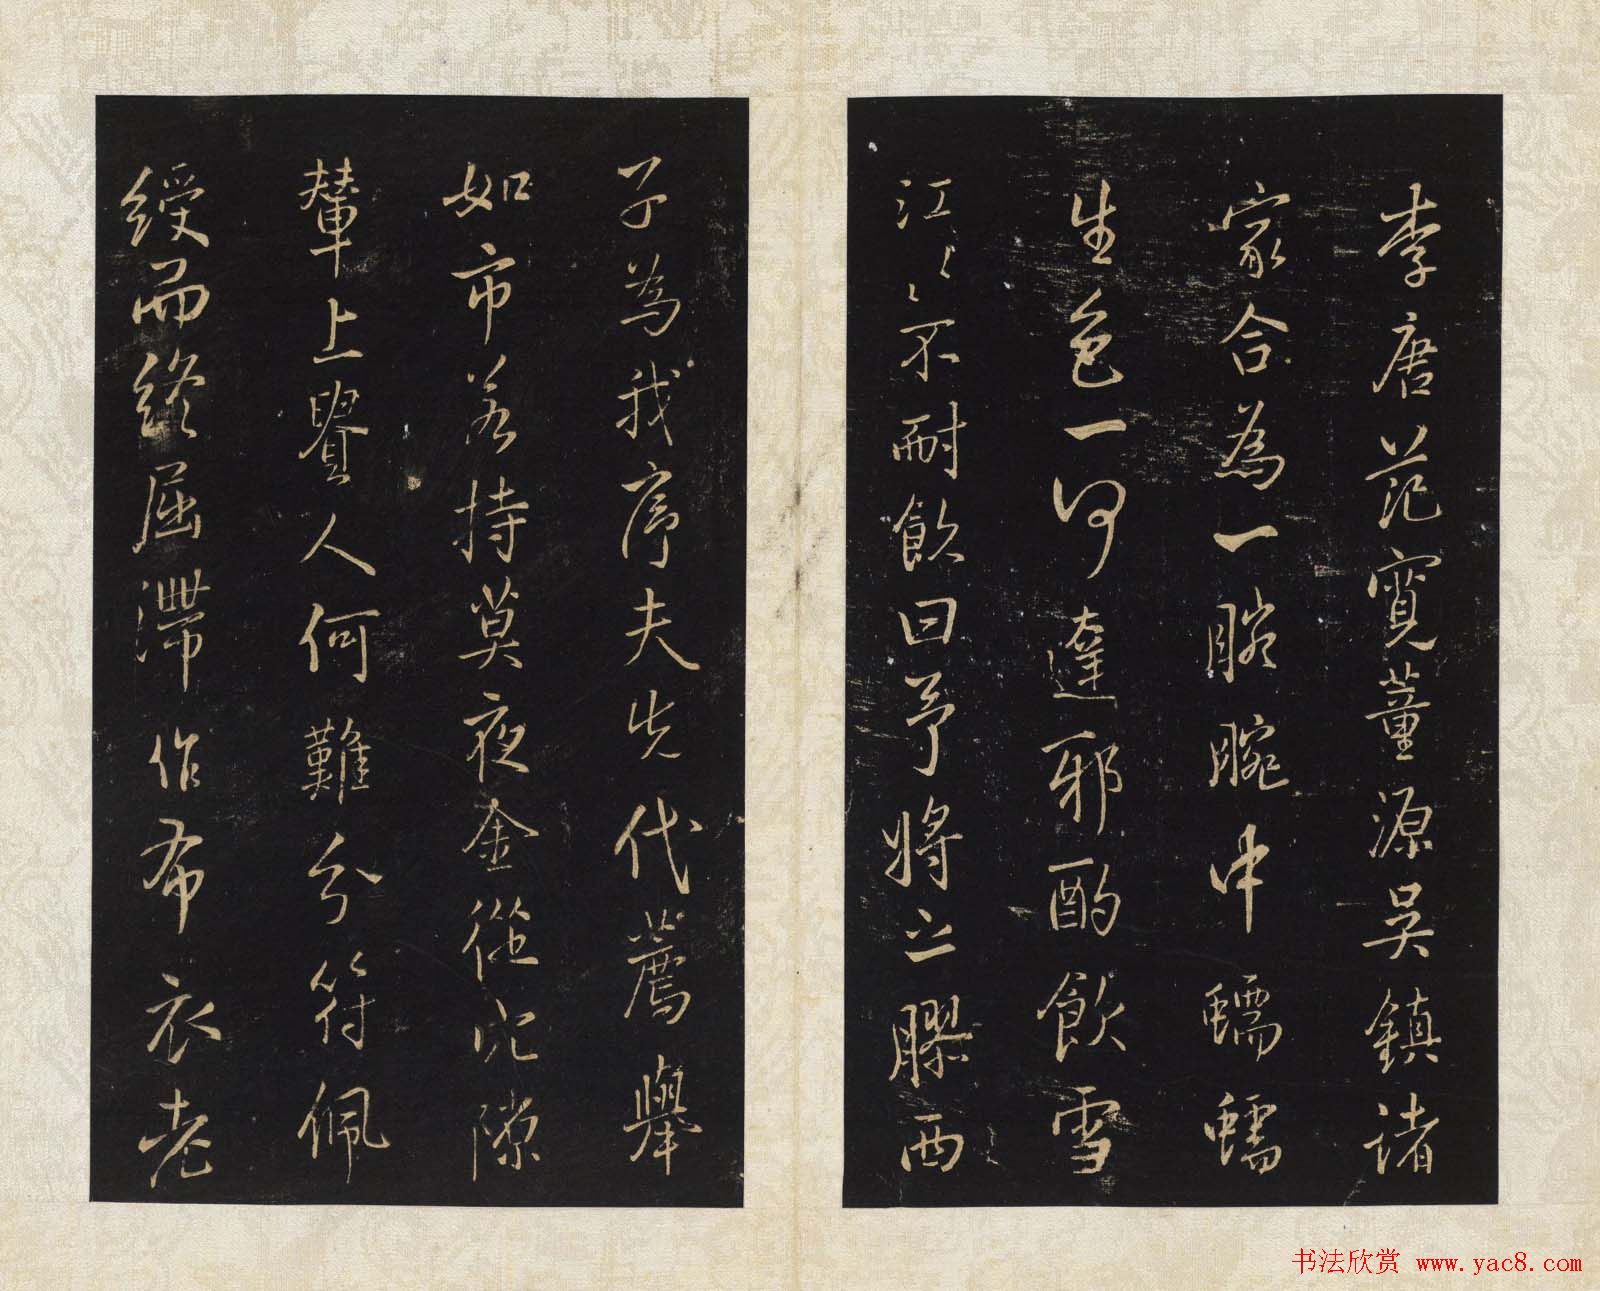 李唐范寬董源吳鎮諸
家合為一腕腕中蠕蠕
生色一何達邪酌飲雪
江々不耐飲曰予將之膠西
子為我序夫先代薦舉
如市若持莫夜金從此隙
輦上貴人何難分符佩
綬而終屈滯作布衣老
书法欣赏 www.yac8.com